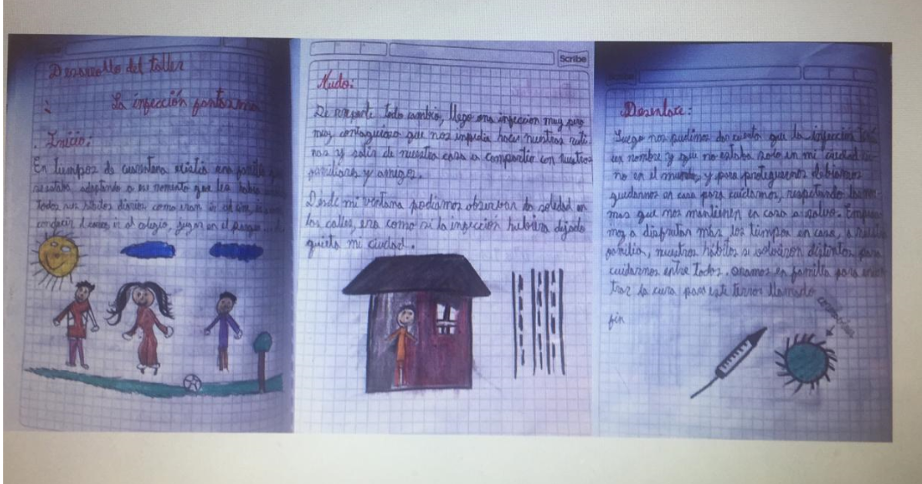 Desarrollo del taller
La infección fantasma
Inicio:
En tiempos de cuarentena existía una familia que
se estaba adaptando a
todos sus hábitos diarios como eran
ir al colegio, jugar en el parque
Scribe
Nudo:
De repente todo cambio, llego una infección muy pero
muy contagiosa que nos impedía hacer nuestras ruti
nas y salir de nuestra casa a compartir con nuestros
familiares y amigos.
Desde mi ventana podíamos observar la soledad en
las calles, era como si la infección hubiera dejado
quieta mi ciudad.
Desenlace:
Luego nos pudimos dar cuenta que la infección
un nombre y que no estaba solo en mi ciudad si
no en el mundo, y para protegernos debíamos
quedarnos en casa para cuidarnos, respetando las nor
mas que nos mantienen en casa a salvo. Empeza
mos a disfrutar más los tiempos en casa,
familia, nuestros hábitos se volvieron distintos para
cuidarnos entre todos. oramos en familia para encon
trar la cura para este terror llamado
fin